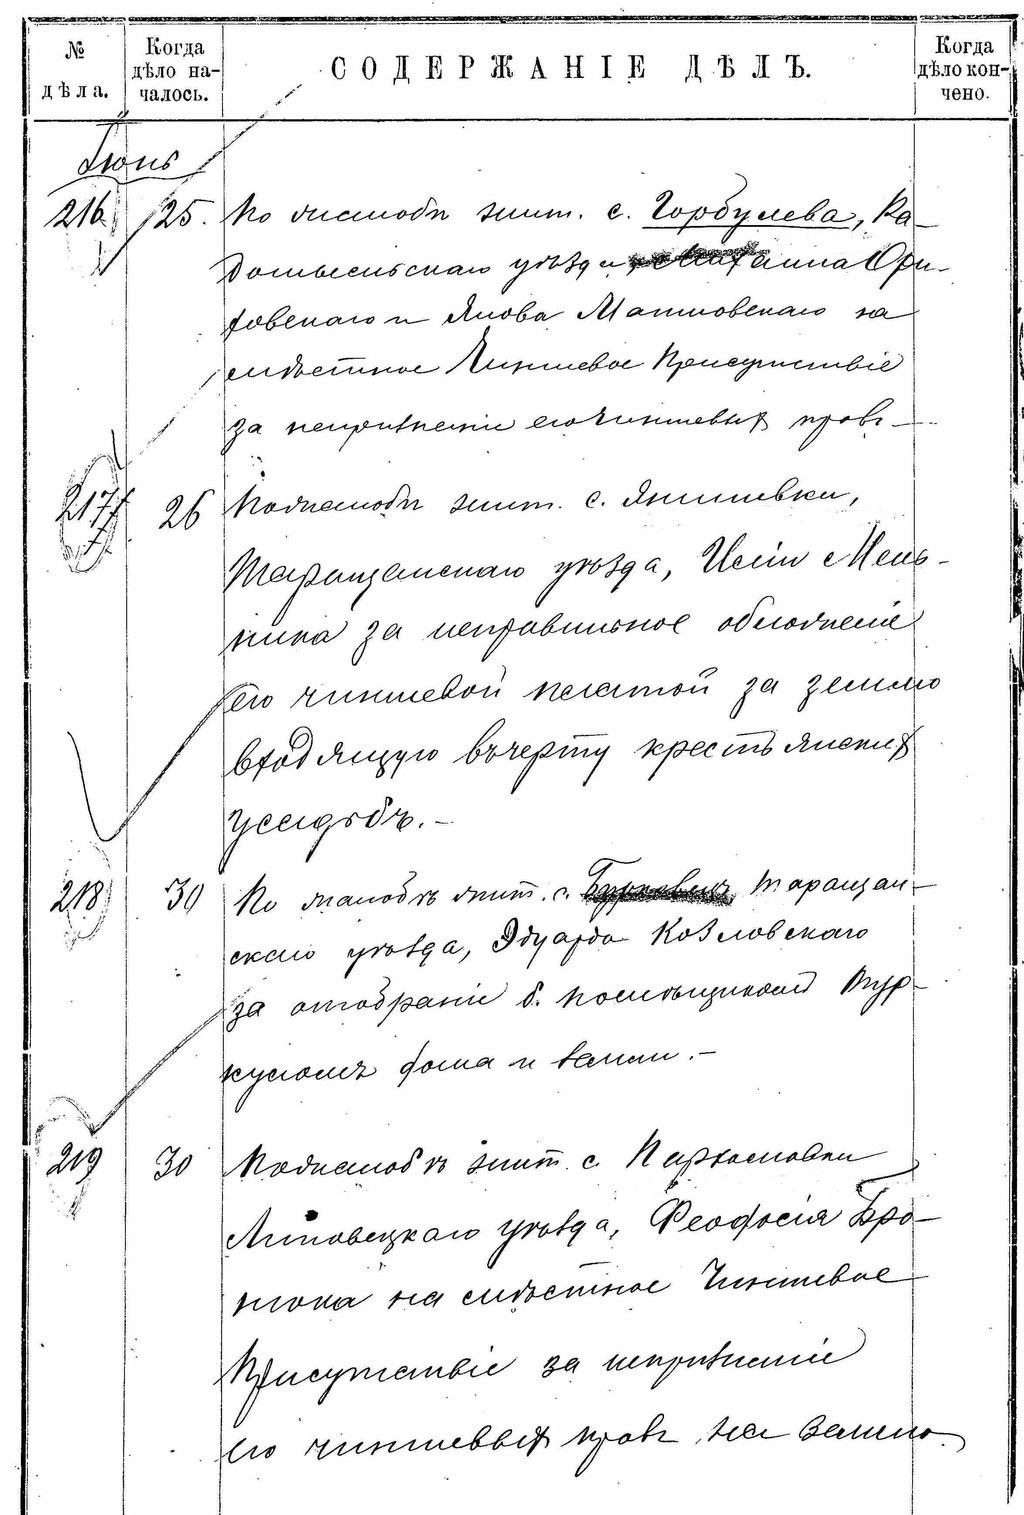 № дѣла.
Когда дѣло началось.
СОДЕРЖАНІЕ ДѢЛЪ.
Когда дѣло кончено.
Іюнь
216 25. По жалобѣ жит. с. Горбулева, Ра-
домысльскаго уѣзда, Михаила
ховскаго и Якова Матковскаго на
мѣстное Чиншевое Присутствіе
за непризнаніе его чиншевыхъ правъ –
217 26 По жалобѣ жит. с. Янишевки,
Таращанскаго уѣзда, Исіи Мель-
ника за неправильное обложеніе
его чиншевой платой за землю
входящую въ черту крестьянских
усадьбъ. –
218 30 По жалобѣ жит. с. Таращан-
скаго уѣзда, Эдуарда Козловскаго
за отобраніе б. помѣщикомъ Тур-
куломъ дома и земли. –
219 30 По жалобѣ жит. с. Пархомовки
Липовецкаго уѣзда, Феофосія Бро-
нюка на мѣстное Чиншевое
Присутствіе за непризнаніе
его чиншевыхъ правъ на землю.